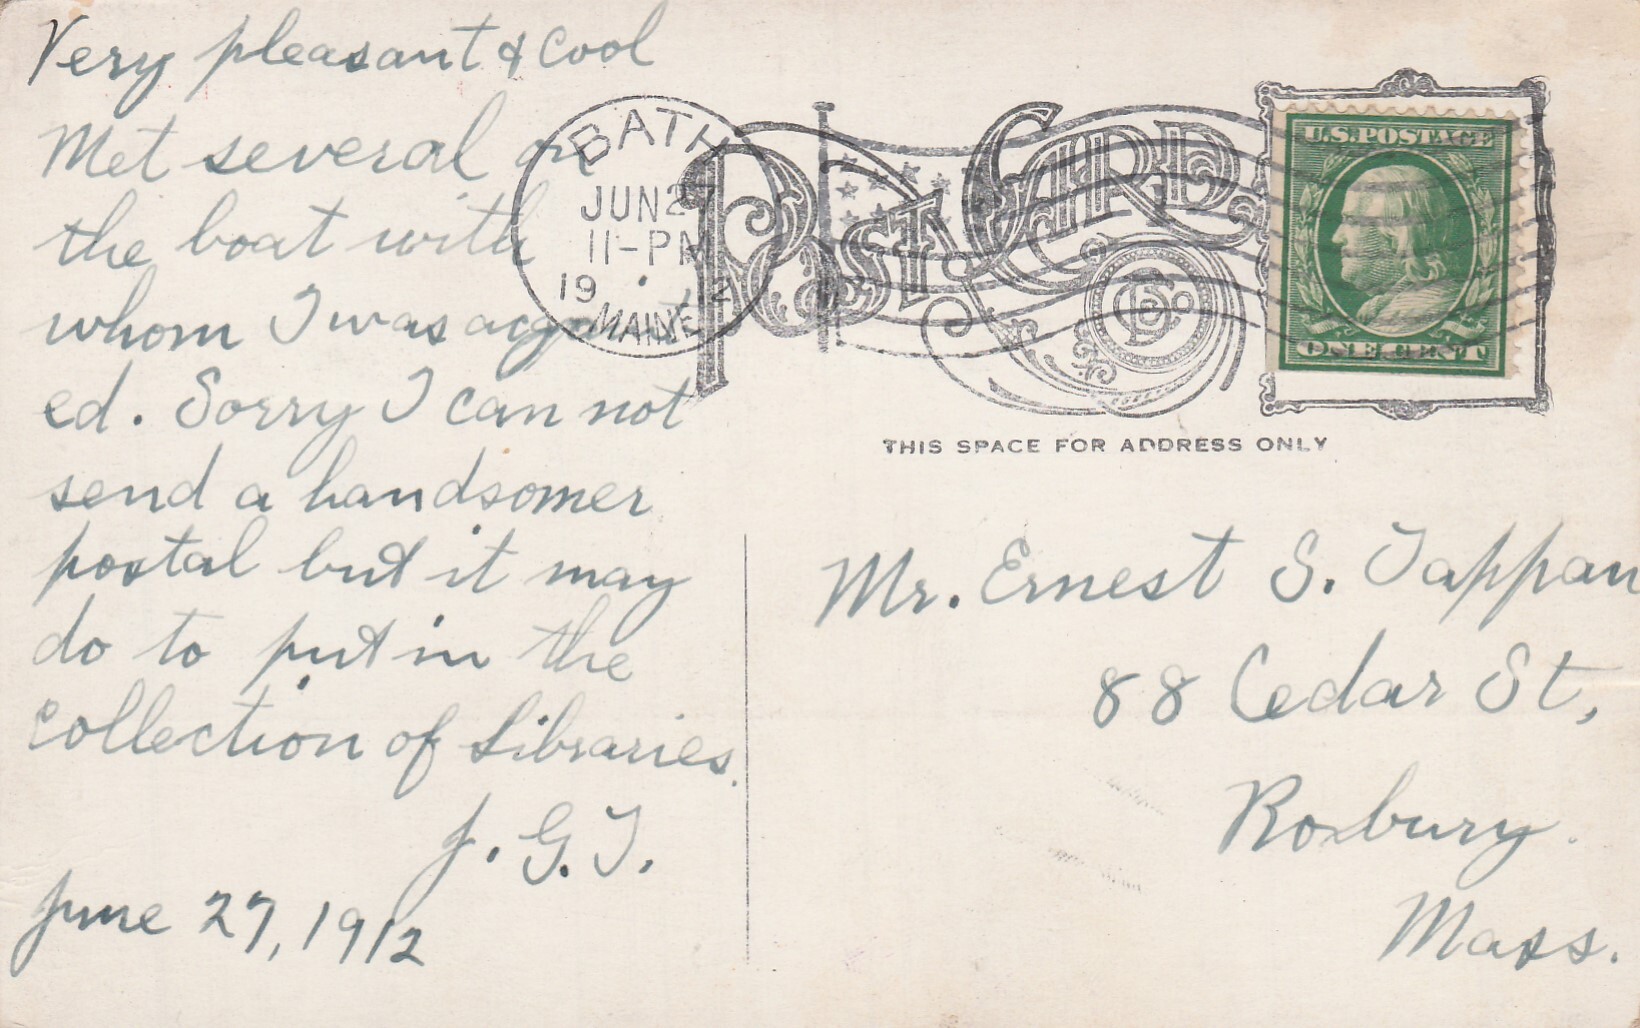 Very pleasant & cool
Met several on
the boat with
whom I was acquaint
ed. Sorry I can not
send a handsomer
postal but it may
do to put in the
collection of Libraries.
J. G. T.
June 27, 1912
BATH
JUN 27
11-PM
1912
MAINE
POST CARD
U.S. POSTAGE
ONE CENT
THIS SPACE FOR ADDRESS ONLY
Mr. Ernest S. Tappan
88 Cedar St,
Roxbury.
Mass.